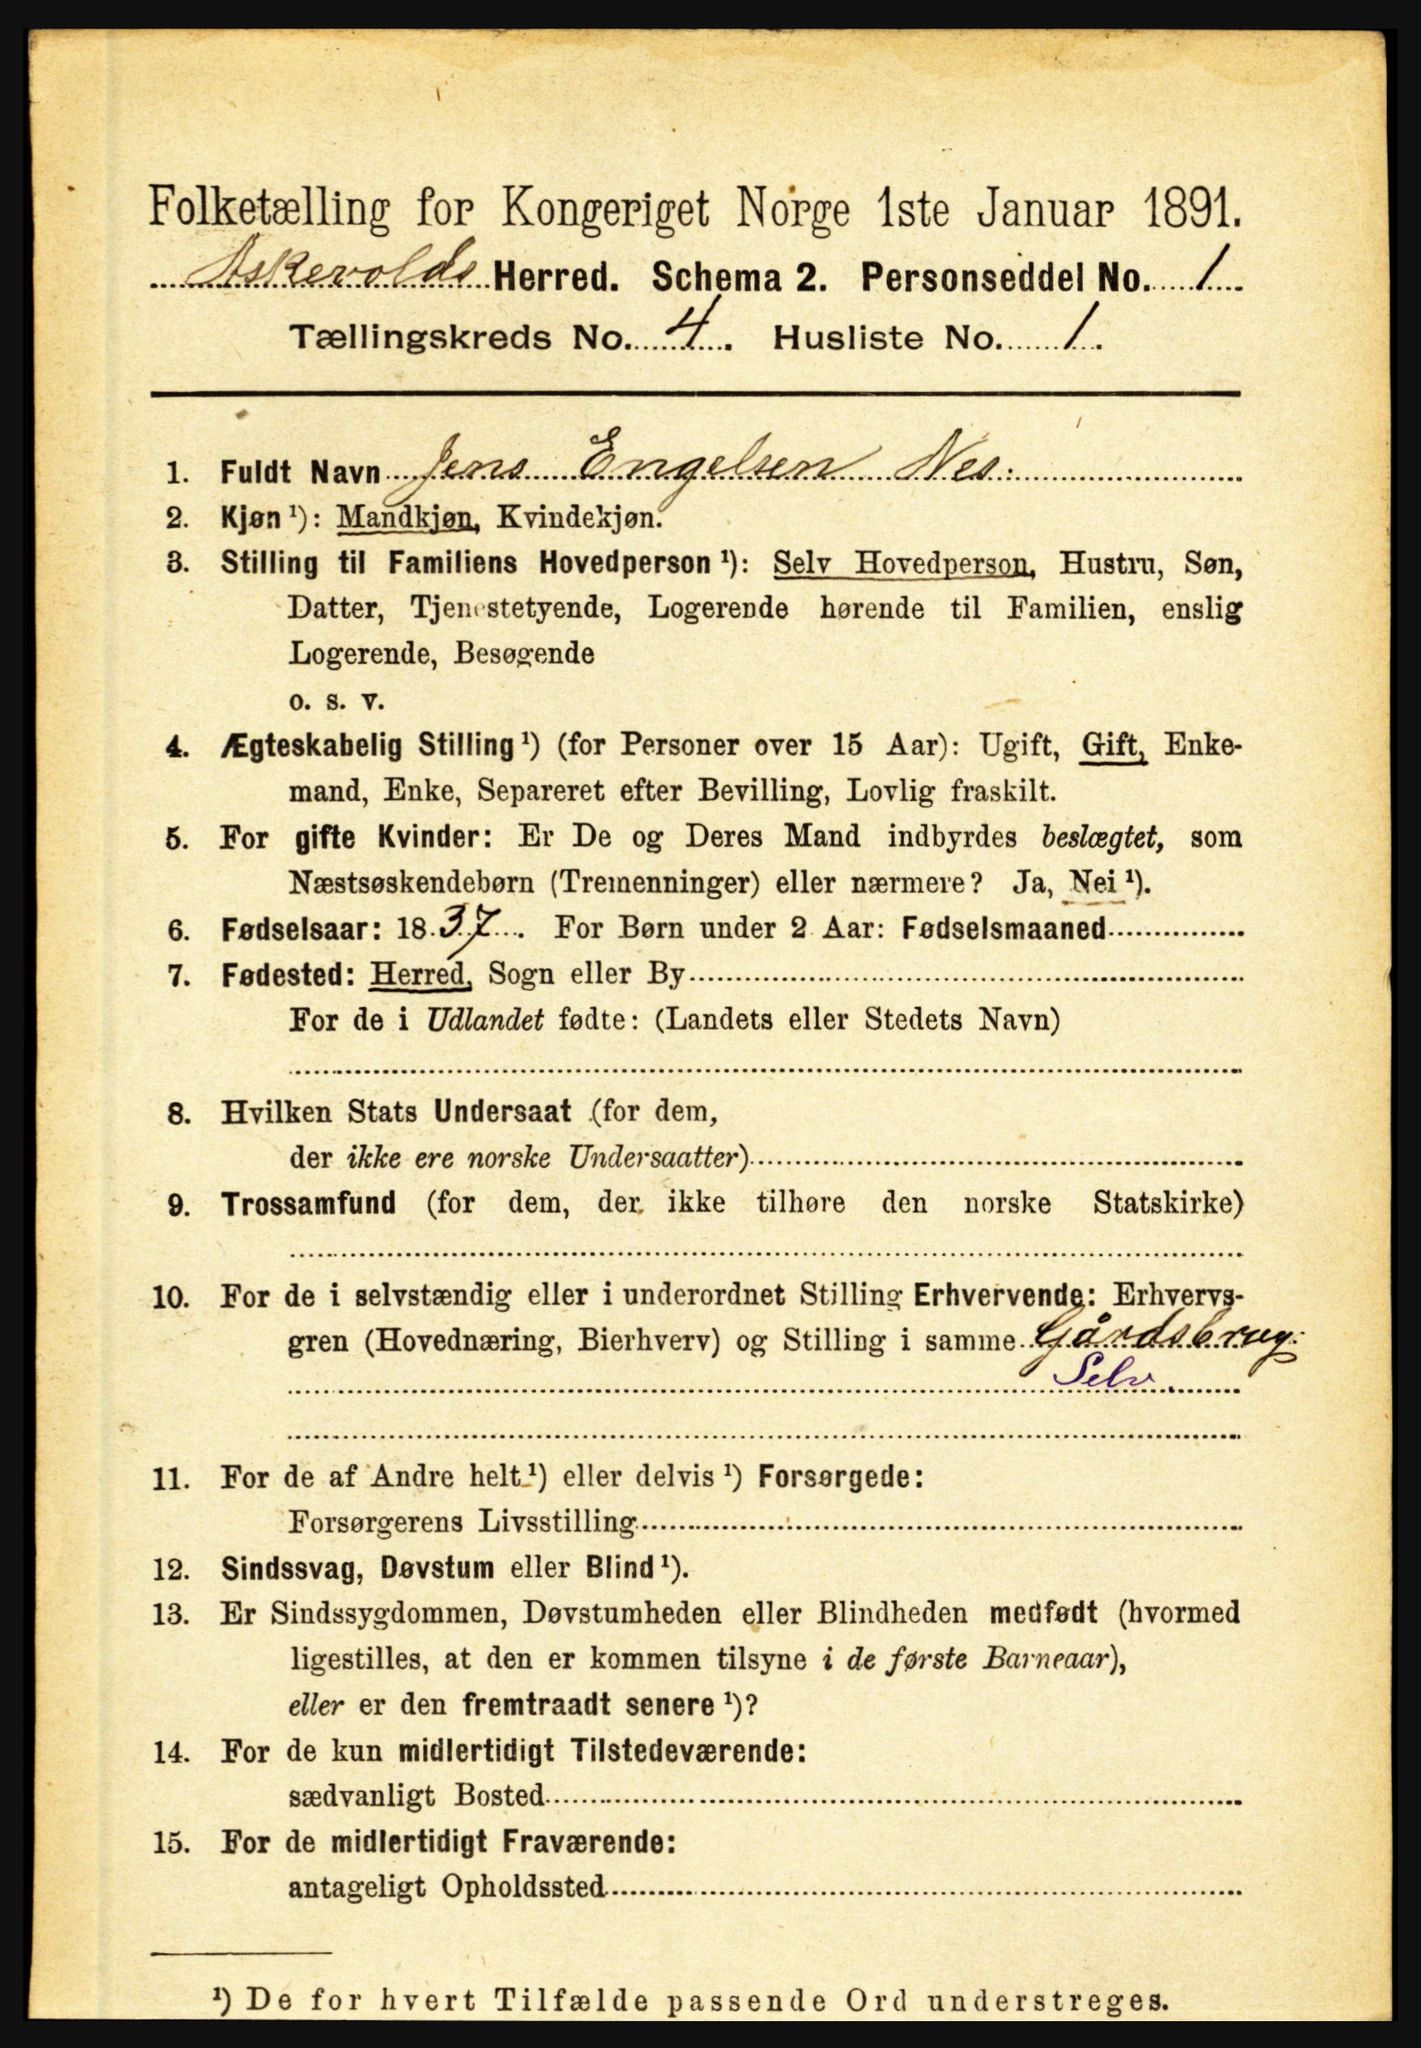 Folketælling for Kongeriget Norge 1ste Januar 1891.
Askevolds Herred. Schema 2. Personseddel No. 1.
Tællingskreds No. 4. Husliste No. 1.
1. Fuldt Navn Jens Engelsen Nes.
2. Kjøn ¹): Mandkjøn, Kvindekjøn.
3. Stilling til Familiens Hovedperson ¹): Selv Hovedperson, Hustru, Søn,
Datter, Tjenestetyende, Logerende hørende til Familien, enslig
Logerende, Besøgende
o. s. v.
4. Ægteskabelig Stilling ¹) (for Personer over 15 Aar): Ugift, Gift, Enke-
mand, Enke, Separeret efter Bevilling, Lovlig fraskilt.
5. For gifte Kvinder: Er De og Deres Mand indbyrdes beslægtet, som
Næstsøskendebørn (Tremenninger) eller nærmere? Ja, Nei ¹).
6. Fødselsaar: 1837. For Børn under 2 Aar: Fødselsmaaned
7. Fødested: Herred, Sogn eller By
For de i Udlandet fødte: (Landets eller Stedets Navn)
8. Hvilken Stats Undersaat (for dem,
der ikke ere norske Undersaatter)
9. Trossamfund (for dem, der ikke tilhøre den norske Statskirke)
10. For de i selvstændig eller i underordnet Stilling Erhvervende: Erhvervs-
gren (Hovednæring, Bierhverv) og Stilling i samme Gårdsbrug.
Selv
11. For de af Andre helt ¹) eller delvis ¹) Forsørgede:
Forsørgerens Livsstilling
12. Sindssvag, Døvstum eller Blind ¹).
13. Er Sindssygdommen, Døvstumheden eller Blindheden medfødt (hvormed
ligestilles, at den er kommen tilsyne i de første Barneaar),
eller er den fremtraadt senere ¹)?
14. For de kun midlertidigt Tilstedeværende:
sædvanligt Bosted
15. For de midlertidigt Fraværende:
antageligt Opholdssted
¹) De for hvert Tilfælde passende Ord understreges.